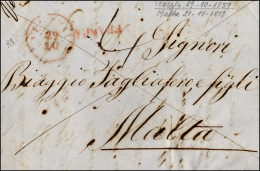 Venezia 29-10-1857
Malta 21-11-1857
29
10
Signori
Biaggio Tagliaferro e figli
Malta